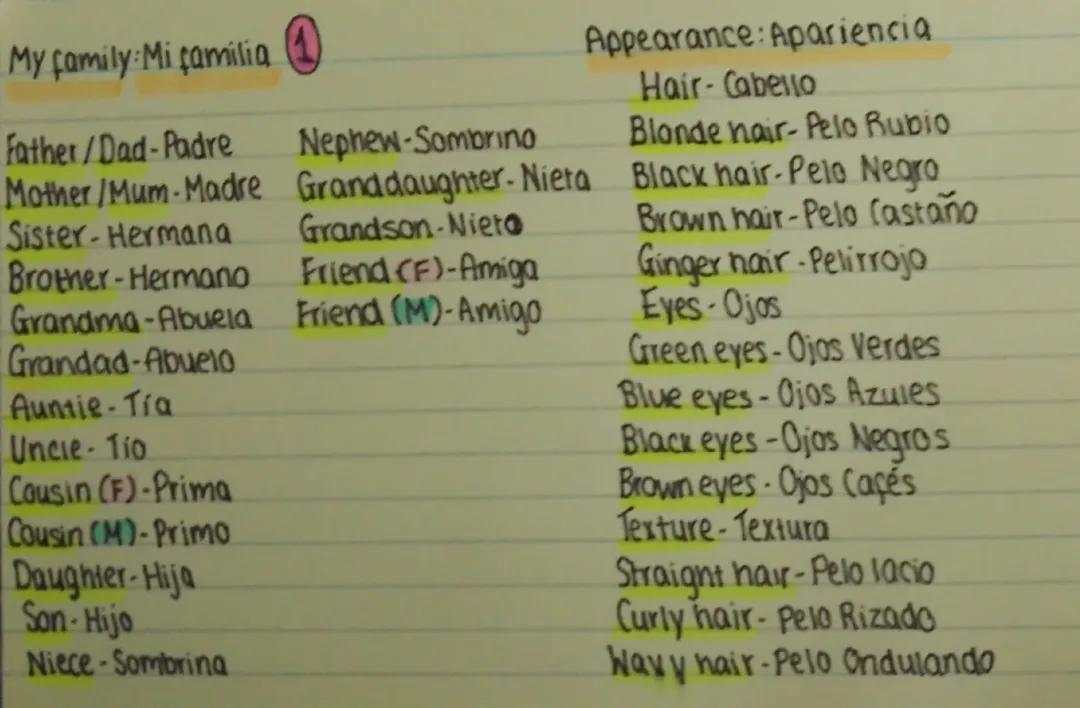 My family: Mi familia 1
Father/Dad-Padre
Mother/Mum-Madre
Sister-Hermana
Brother-Hermano
Grandma-Abuela
Grandad-Abuelo
Auntie-Tía
Uncle-Tío
Cousin (F)-Prima
Cousin (M)-Primo
Daughter-Hija
Son-Hijo
Niece-Sombrina
Nephew-Sombrino
Granddaughter-Nieta
Grandson-Nieto
Friend (F)-Amiga
Friend (M)-Amigo
Appearance: Apariencia
Hair-Cabello
Blonde hair-Pelo Rubio
Black hair-Pelo Negro
Brown hair-Pelo Castaño
Ginger hair-Pelirrojo
Eyes-Ojos
Green eyes-Ojos Verdes
Blue eyes-Ojos Azules
Black eyes-Ojos Negros
Brown eyes-Ojos Cafés
Texture-Textura
Straight hair-Pelo lacio
Curly hair-Pelo Rizado
Wavy hair-Pelo Ondulando